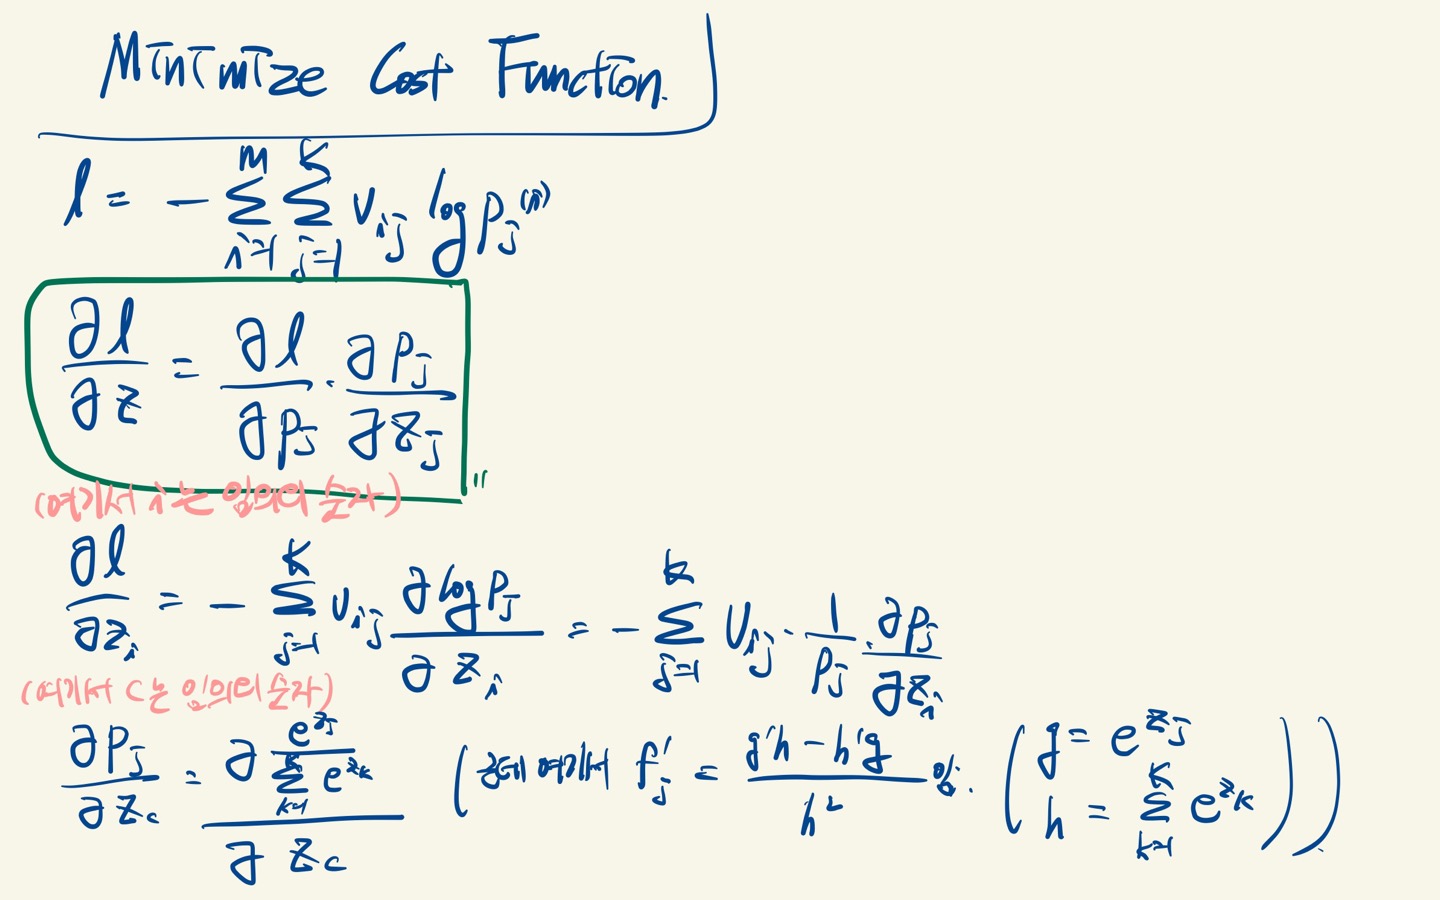 Minimize Cost Function.
l = - \sum_{i=1}^{m} \sum_{j=1}^{K} v_{ij} log p_j^{(i)}
∂l/∂z = ∂l/∂p_j · ∂p_j/∂z_j "
(여기서 i는 임의의 숫자)
∂l/∂z_i = - \sum_{j=1}^{K} v_{ij} ∂log p_j/∂z_i = - \sum_{j=1}^{k} v_{ij} · 1/p_j · ∂p_j/∂z_i
(여기서 c는 임의의 숫자)
∂p_j/∂z_c = ∂ (e^{z_j} / \sum_{k=1}^{K} e^{z_k}) / ∂z_c ( 근데 여기서 f_j' = (g'h - h'g)/h^2 . ( g = e^{z_j} h = \sum_{k=1}^{K} e^{z_k} ) ) .